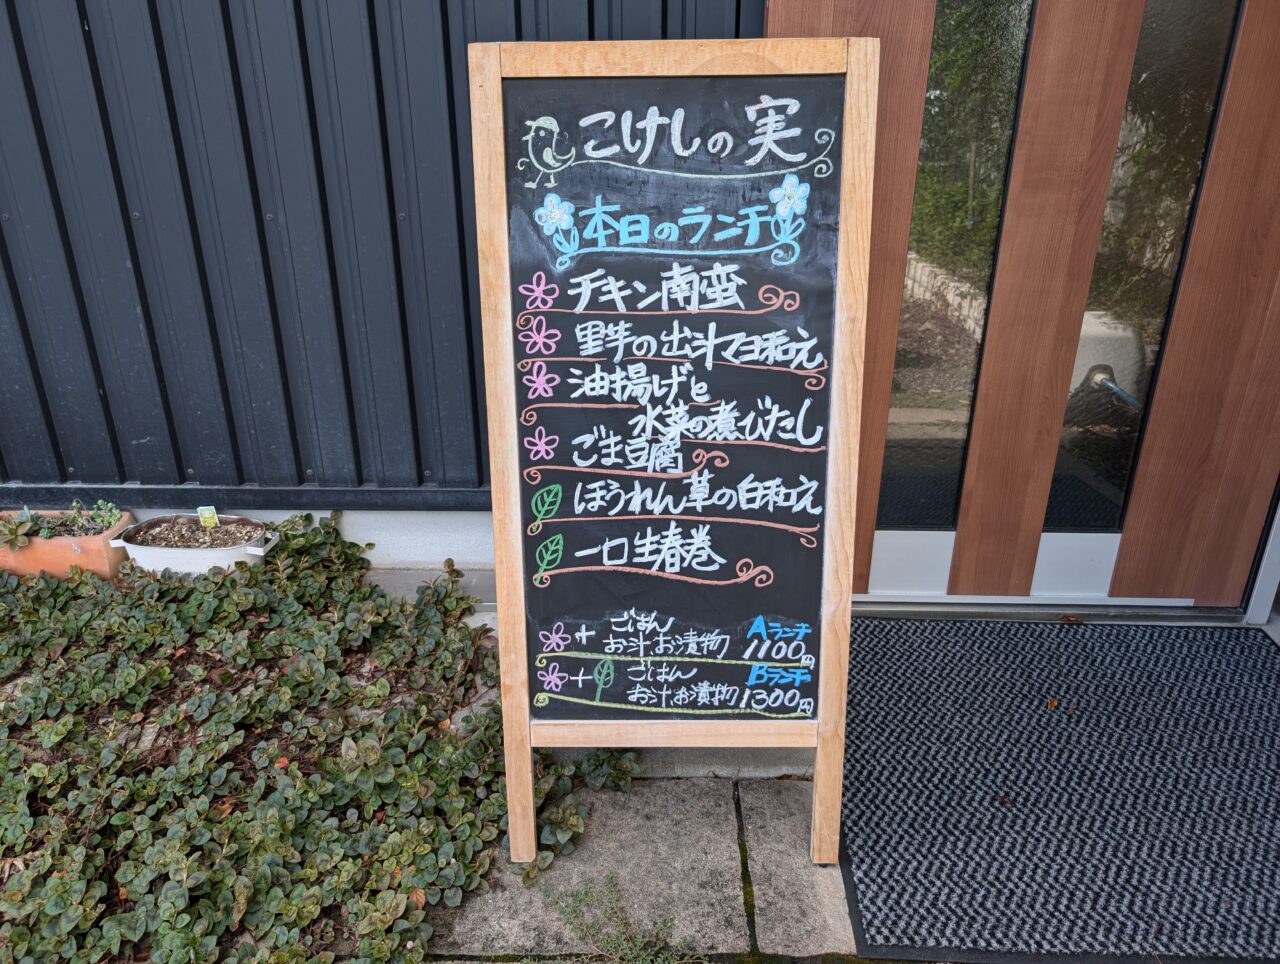 こけしの実
本日のランチ
チキン南蛮
里芋の出汁マヨ和え
油揚げと
水菜の煮びたし
ごま豆腐
ほうれん草の白和え
一口生春巻
+ ごはん Aランチ
お汁お漬物 1100円
+ ごはん Bランチ
お汁お漬物 1300円